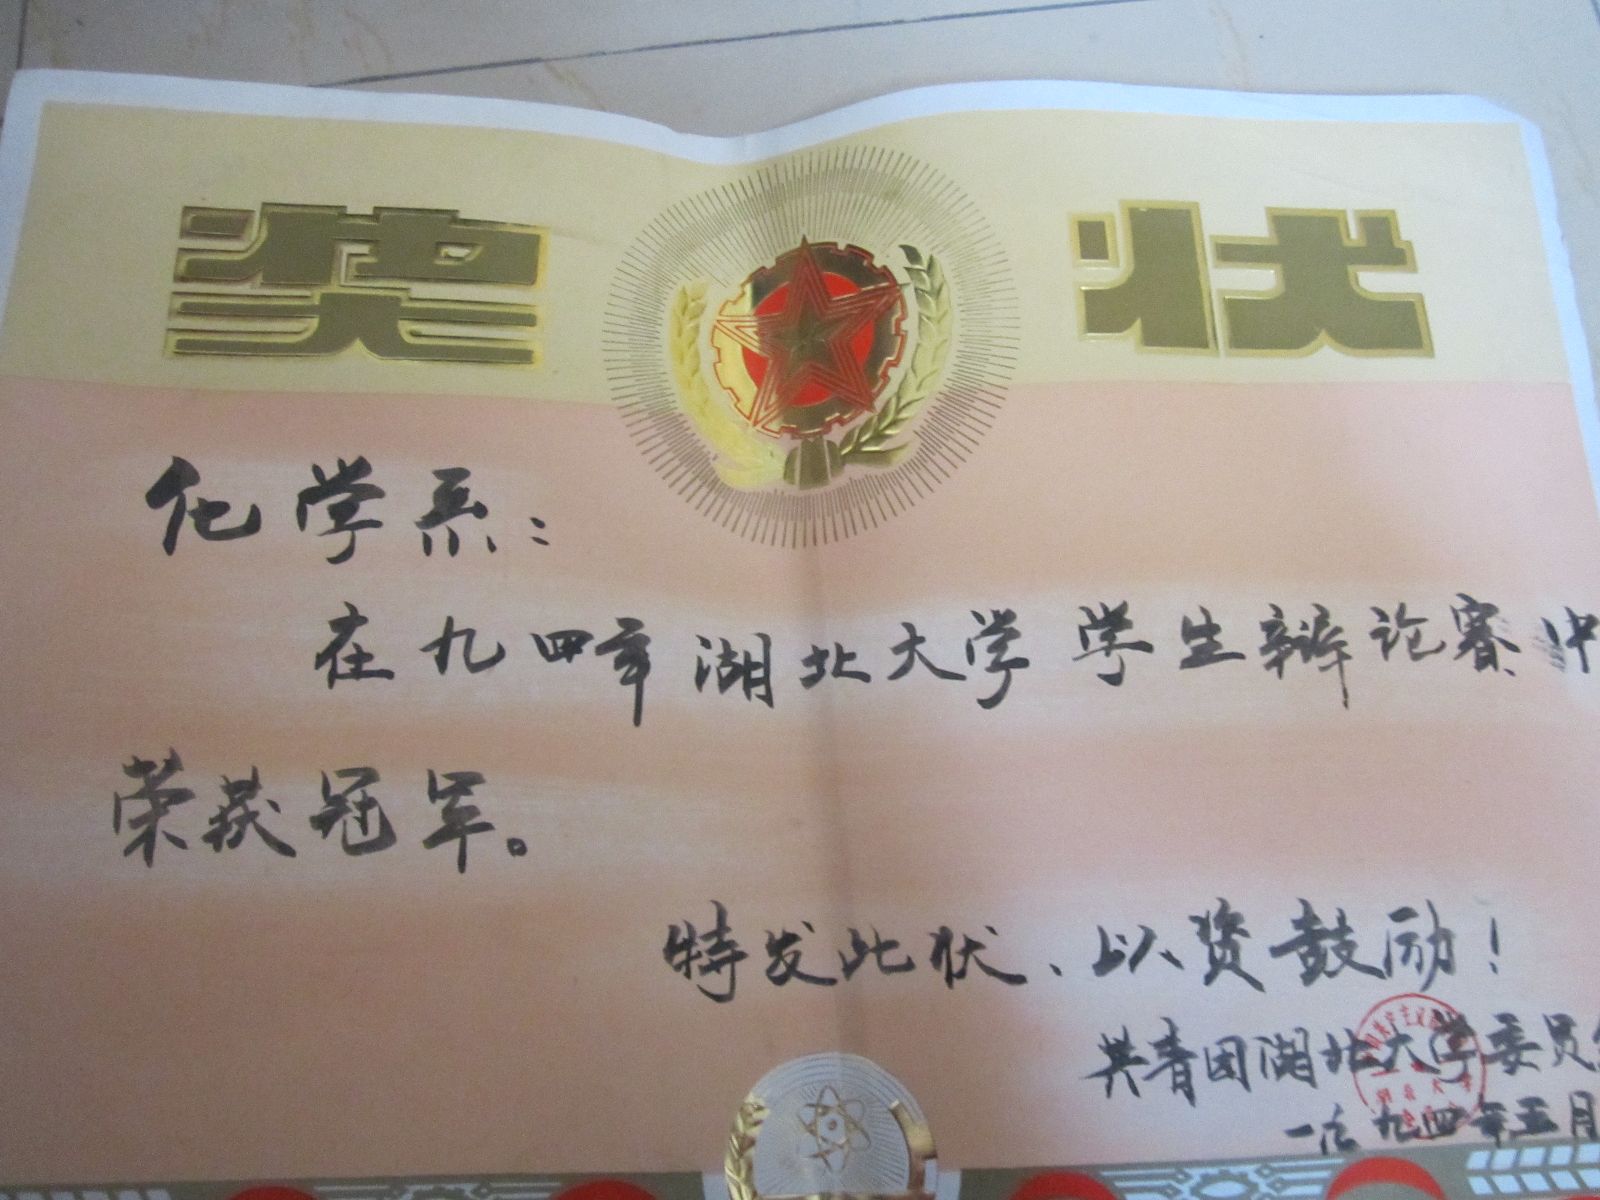 奖状
化学系：
在九四年湖北大学学生辩论赛中
荣获冠军。
特发此状、以资鼓励！
共青团湖北大学委员会
一九九四年五月